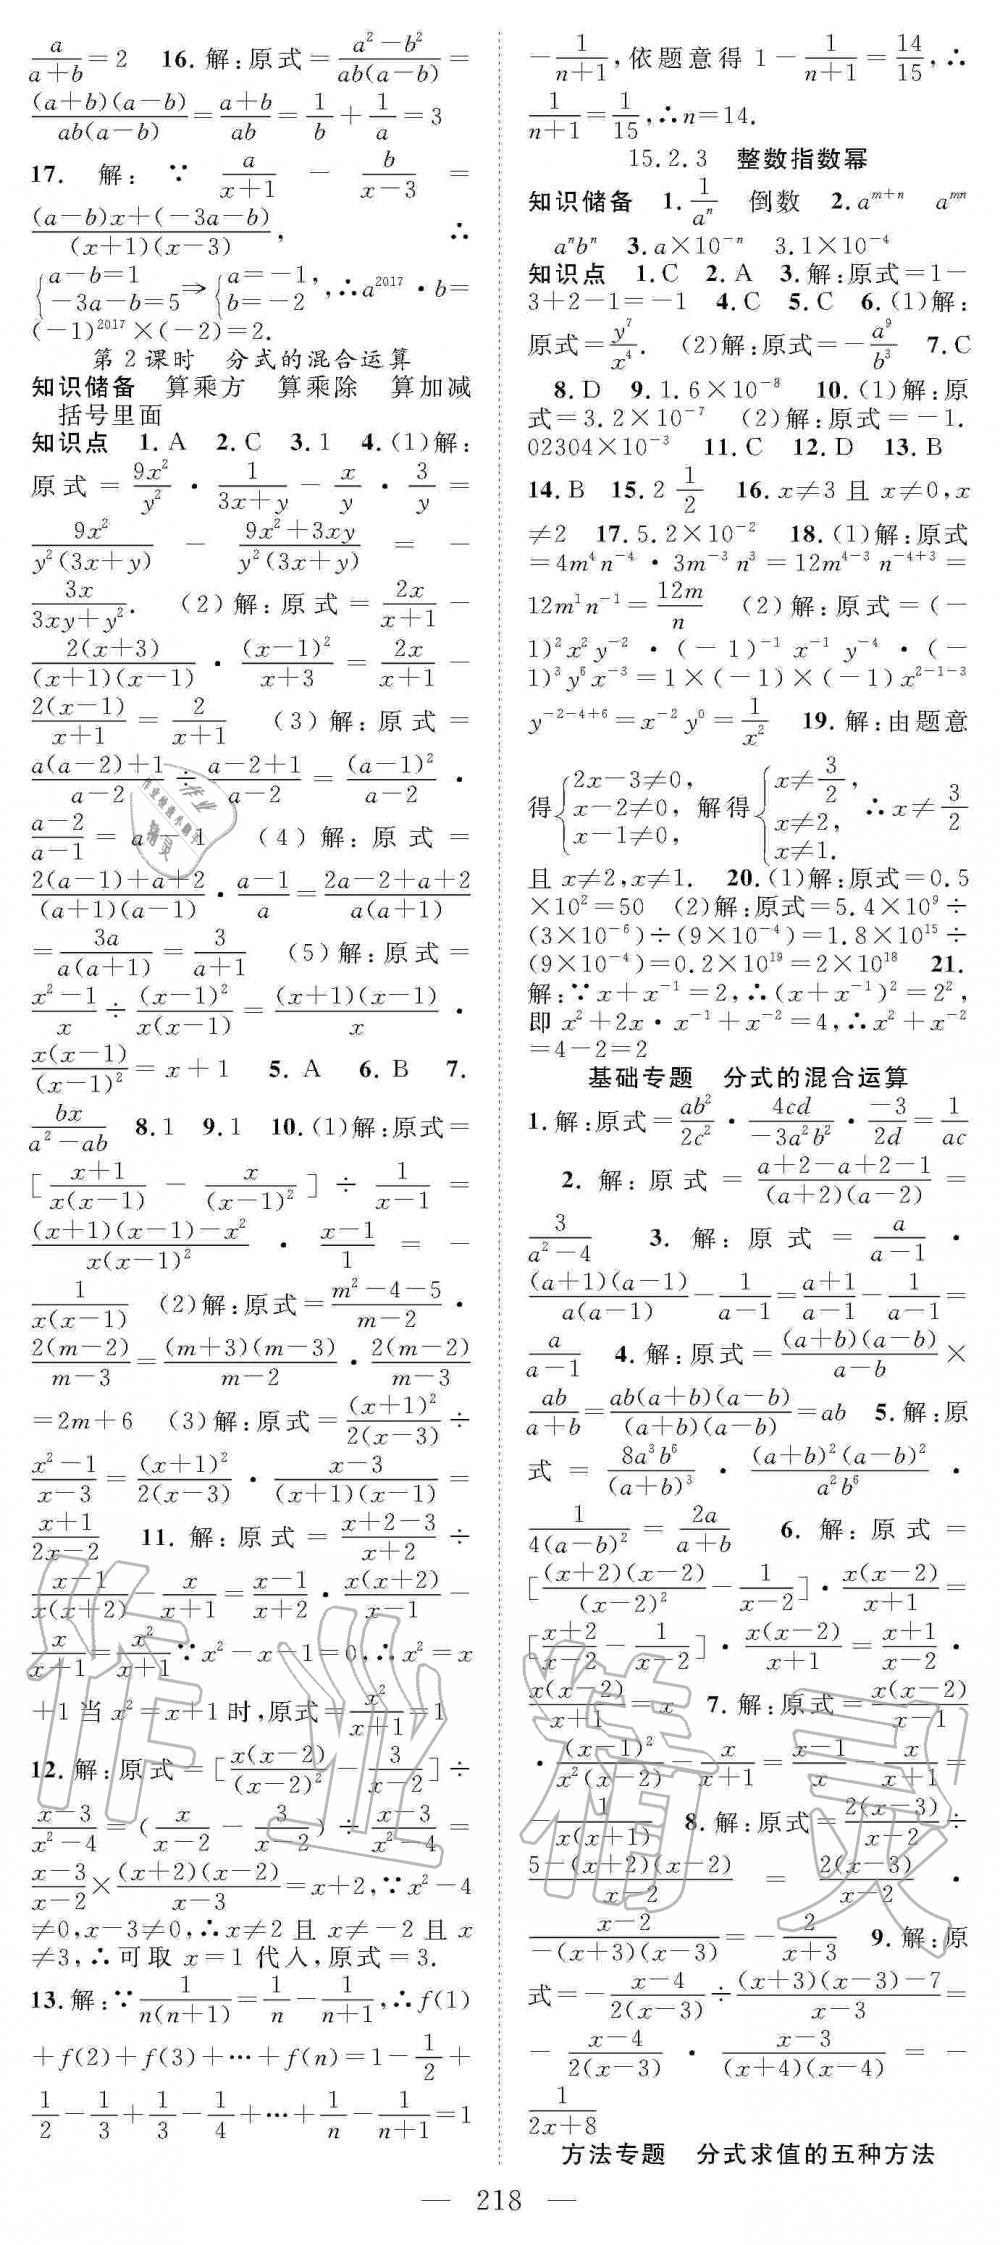 a/(a+b)=2　16.解:原式=(a²-b²)/(ab(a-b))=
((a+b)(a-b))/(ab(a-b))=(a+b)/(ab)=1/b+1/a=3
17. 解: ∵ a/(x+1) - b/(x-3) =
((a-b)x+(-3a-b))/((x+1)(x-3)), ∴
{a-b=1 -3a-b=5⇒{a=-1, b=-2,∴a²⁰¹⁷·b=
(-1)²⁰¹⁷×(-2)=2.
第2课时　分式的混合运算
知识储备　算乘方　算乘除　算加减
括号里面
知识点　1.A　2.C　3.1　4.(1)解:
原式=9x²/y²·1/(3x+y)-x/y·3/y=
9x²/(y²(3x+y)) - (9x²+3xy)/(y²(3x+y)) = -
3x/(3xy+y²).　(2)解:原式=2x/(x+1)-
2(x+3)/((x+1)(x-1))·(x-1)²/(x+3)=2x/(x+1)-
2(x-1)/(x+1)=2/(x+1)　(3)解:原式=
(a(a-2)+1)/(a-2)÷(a-2+1)/(a-2)=(a-1)²/(a-2)·
(a-2)/(a-1)=a-1　(4)解:原式=
(2(a-1)+a+2)/((a+1)(a-1))·(a-1)/a=(2a-2+a+2)/(a(a+1))
=3a/(a(a+1))=3/(a+1)　(5)解:原式=
(x²-1)/x÷(x-1)²/(x(x-1))=((x+1)(x-1))/x·
x(x-1)/(x-1)²=x+1　5.A　6.B　7.
bx/(a²-ab)　8.1　9.1　10.(1)解:原式=
[(x+1)/(x(x-1)) - x/(x-1)²]÷1/(x-1)=
((x+1)(x-1)-x²)/(x(x-1)²)·(x-1)/1=-
1/(x(x-1))　(2)解:原式=(m²-4-5)/(m-2)·
2(m-2)/(m-3)=((m+3)(m-3))/(m-2)·2(m-2)/(m-3)
=2m+6　(3)解:原式=(x+1)²/(2(x-3))÷
(x²-1)/(x-3)=(x+1)²/(2(x-3))·(x-3)/((x+1)(x-1))=
(x+1)/(2x-2)　11.解:原式=(x+2-3)/(x+2)÷
(x-1)/(x(x+2))-x/(x+1)=(x-1)/(x+2)·x(x+2)/(x-1)-
x/(x+1)=x²/(x+1)∵x²-x-1=0,∴x²=x
+1当x²=x+1时,原式=x²/(x+1)=1
12.解:原式=[x(x-2)/(x-2)²-3/(x-2)]÷
(x-3)/(x²-4)=(x/(x-2)-3/(x-2))÷(x-3)/(x²-4)=
(x-3)/(x-2)×((x+2)(x-2))/(x-3)=x+2,∵x²-4
≠0,x-3≠0,∴x≠2且x≠-2且x
≠3,∴可取x=1代入,原式=3.
13.解:∵1/(n(n+1))=1/n-1/(n+1),∴f(1)
+f(2)+f(3)+…+f(n)=1-1/2+
1/2-1/3+1/3-1/4+…+1/n-1/(n+1)=1
-1/(n+1),依题意得1-1/(n+1)=14/15,∴
1/(n+1)=1/15,∴n=14.
15.2.3　整数指数幂
知识储备　1.1/aⁿ　倒数　2.aᵐ⁺ⁿ　aᵐⁿ
aⁿbⁿ　3.a×10⁻ⁿ　3.1×10⁻⁴
知识点　1.C　2.A　3.解:原式=1-
3+2-1=-1　4.C　5.C　6.(1)解:
原式=y⁷/x⁴.　(2)解:原式=-a⁹/b³　7.C
8.D　9.1.6×10⁻⁸　10.(1)解:原
式=3.2×10⁻⁷　(2)解:原式=-1.
02304×10⁻³　11.C　12.D　13.B
14.B　15.2 1/2　16.x≠3且x≠0,x
≠2　17.5.2×10⁻²　18.(1)解:原式
=4m⁴n⁻⁴·3m⁻³n³=12m⁴⁻³n⁻⁴⁺³=
12m¹n⁻¹=12m/n　(2)解:原式=(-
1)²x²y⁻²·(-1)⁻¹x⁻¹y⁻⁴·(-
1)³y⁶x⁻³=1×(-1)×(-1)x²⁻¹⁻³
y⁻²⁻⁴⁺⁶=x⁻²y⁰=1/x²　19.解:由题意
得{2x-3≠0, x-2≠0, x-1≠0,解得{x≠3/2, x≠2, x≠1.∴x≠3/2
且x≠2,x≠1.　20.(1)解:原式=0.5
×10²=50　(2)解:原式=5.4×10⁹÷
(3×10⁻⁶)÷(9×10⁻⁴)=1.8×10¹⁵÷
(9×10⁻⁴)=0.2×10¹⁹=2×10¹⁸　21.
解:∵x+x⁻¹=2,∴(x+x⁻¹)²=2²,
即x²+2x·x⁻¹+x⁻²=4,∴x²+x⁻²
=4-2=2
基础专题　分式的混合运算
1.解:原式=ab²/2c²·4cd/(-3a²b²)·(-3)/2d=1/ac
2.解:原式=(a+2-a+2-1)/((a+2)(a-2))=
3/(a²-4)　3.解:原式=a/(a-1)·
((a+1)(a-1))/(a(a-1))-1/(a-1)=(a+1)/(a-1)-1/(a-1)=
a/(a-1)　4.解:原式=((a+b)(a-b))/(a-b)×
ab/(a+b)=(ab(a+b)(a-b))/((a+b)(a-b))=ab　5.解:原
式=8a³b⁶/(a+b)³·((a+b)²(a-b)²)/(a²b⁶)·
1/(4(a-b)²)=2a/(a+b)　6.解:原式=
[((x+2)(x-2))/(x-2)²-1/(x-2)]·x(x-2)/(x+1)=
[(x+2)/(x-2)-1/(x-2)]·x(x-2)/(x+1)=(x+1)/(x-2)·
x(x-2)/(x+1)=x　7.解:原式=x(x-2)/(x-1)
·(x-1)²/(x²(x-2))-x/(x+1)=(x-1)/x-x/(x+1)=
-1/(x(x+1))　8.解:原式=2(x-3)/(x-2)÷
(5-(x+2)(x-2))/(x-2)=2(x-3)/(x-2)·
(x-2)/(-(x+3)(x-3))=-2/(x+3)　9.解:原
式=-(x-4)/(2(x-3))÷((x+3)(x-3)-7)/(x-3)=
-(x-4)/(2(x-3))·(x-3)/((x+4)(x-4))=-
1/(2x+8)
方法专题　分式求值的五种方法
— 218 —
作业精灵